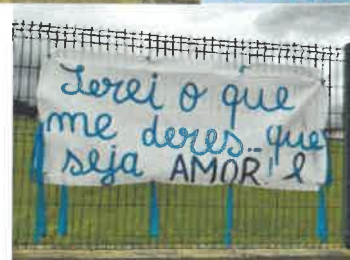 Terei o que
me deres... que
seja AMOR! e